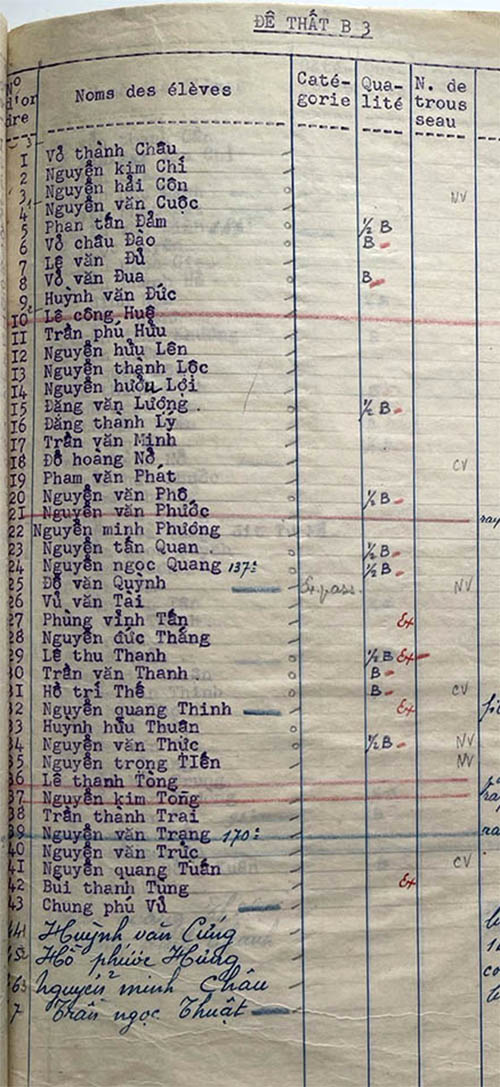 ĐÊ THẤT B 3
No d'or dre Noms des élèves Caté- gorie Qua- lité N. de trous seau
I Võ thành Châu
2 Nguyễn kim Chí
3 Nguyễn hải Côn NV
4 Nguyễn văn Cuộc
5 Phan tấn Đảm ½ B
6 Võ châu Đạo B
7 Lê văn Đủ
8 Võ văn Đua B
9 Huỳnh văn Đức
IO Lê công Huệ
II Trần phú Hữu
I2 Nguyễn hữu Lên
I3 Nguyễn thành Lộc
I4 Nguyễn hườu Lợi
I5 Đăng văn Lương . ½ B
I6 Đăng thanh Lý
I7 Trần văn Minh
I8 Đỗ hoàng Nở CV
I9 Phạm văn Phát
20 Nguyễn văn Phố ½ B
2I Nguyễn văn Phước
22 Nguyễn minh Phương
23 Nguyễn tấn Quan ½ B
24 Nguyễn ngọc Quang 137: ½ B
25 Đỗ văn Quỳnh Ex. pass. NV
26 Vũ văn Tài
27 Phùng vĩnh Tấn Ex
28 Nguyễn đức Thắng
29 Lê thu Thanh ½ B Ex
30 Trần văn Thanh B
3I Hồ trí Thể B CV
32 Nguyễn quang Thinh Ex
33 Huỳnh hữu Thuân
34 Nguyễn văn Thức ½ B NV
35 Nguyễn trọng TIến NV
36 Lê thanh Tòng
37 Nguyễn kim Tòng
38 Trần thanh Trai
39 Nguyễn văn Trạng 170:
40 Nguyễn văn Trúc CV
4I Nguyễn quang Tuấn
42 Bùi thanh Tùng Ex
43 Chung phú Vủ
Huỳnh văn Cứng
Hồ phước Hùng
Nguyễn minh Châu
7 Trần ngọc Thuật